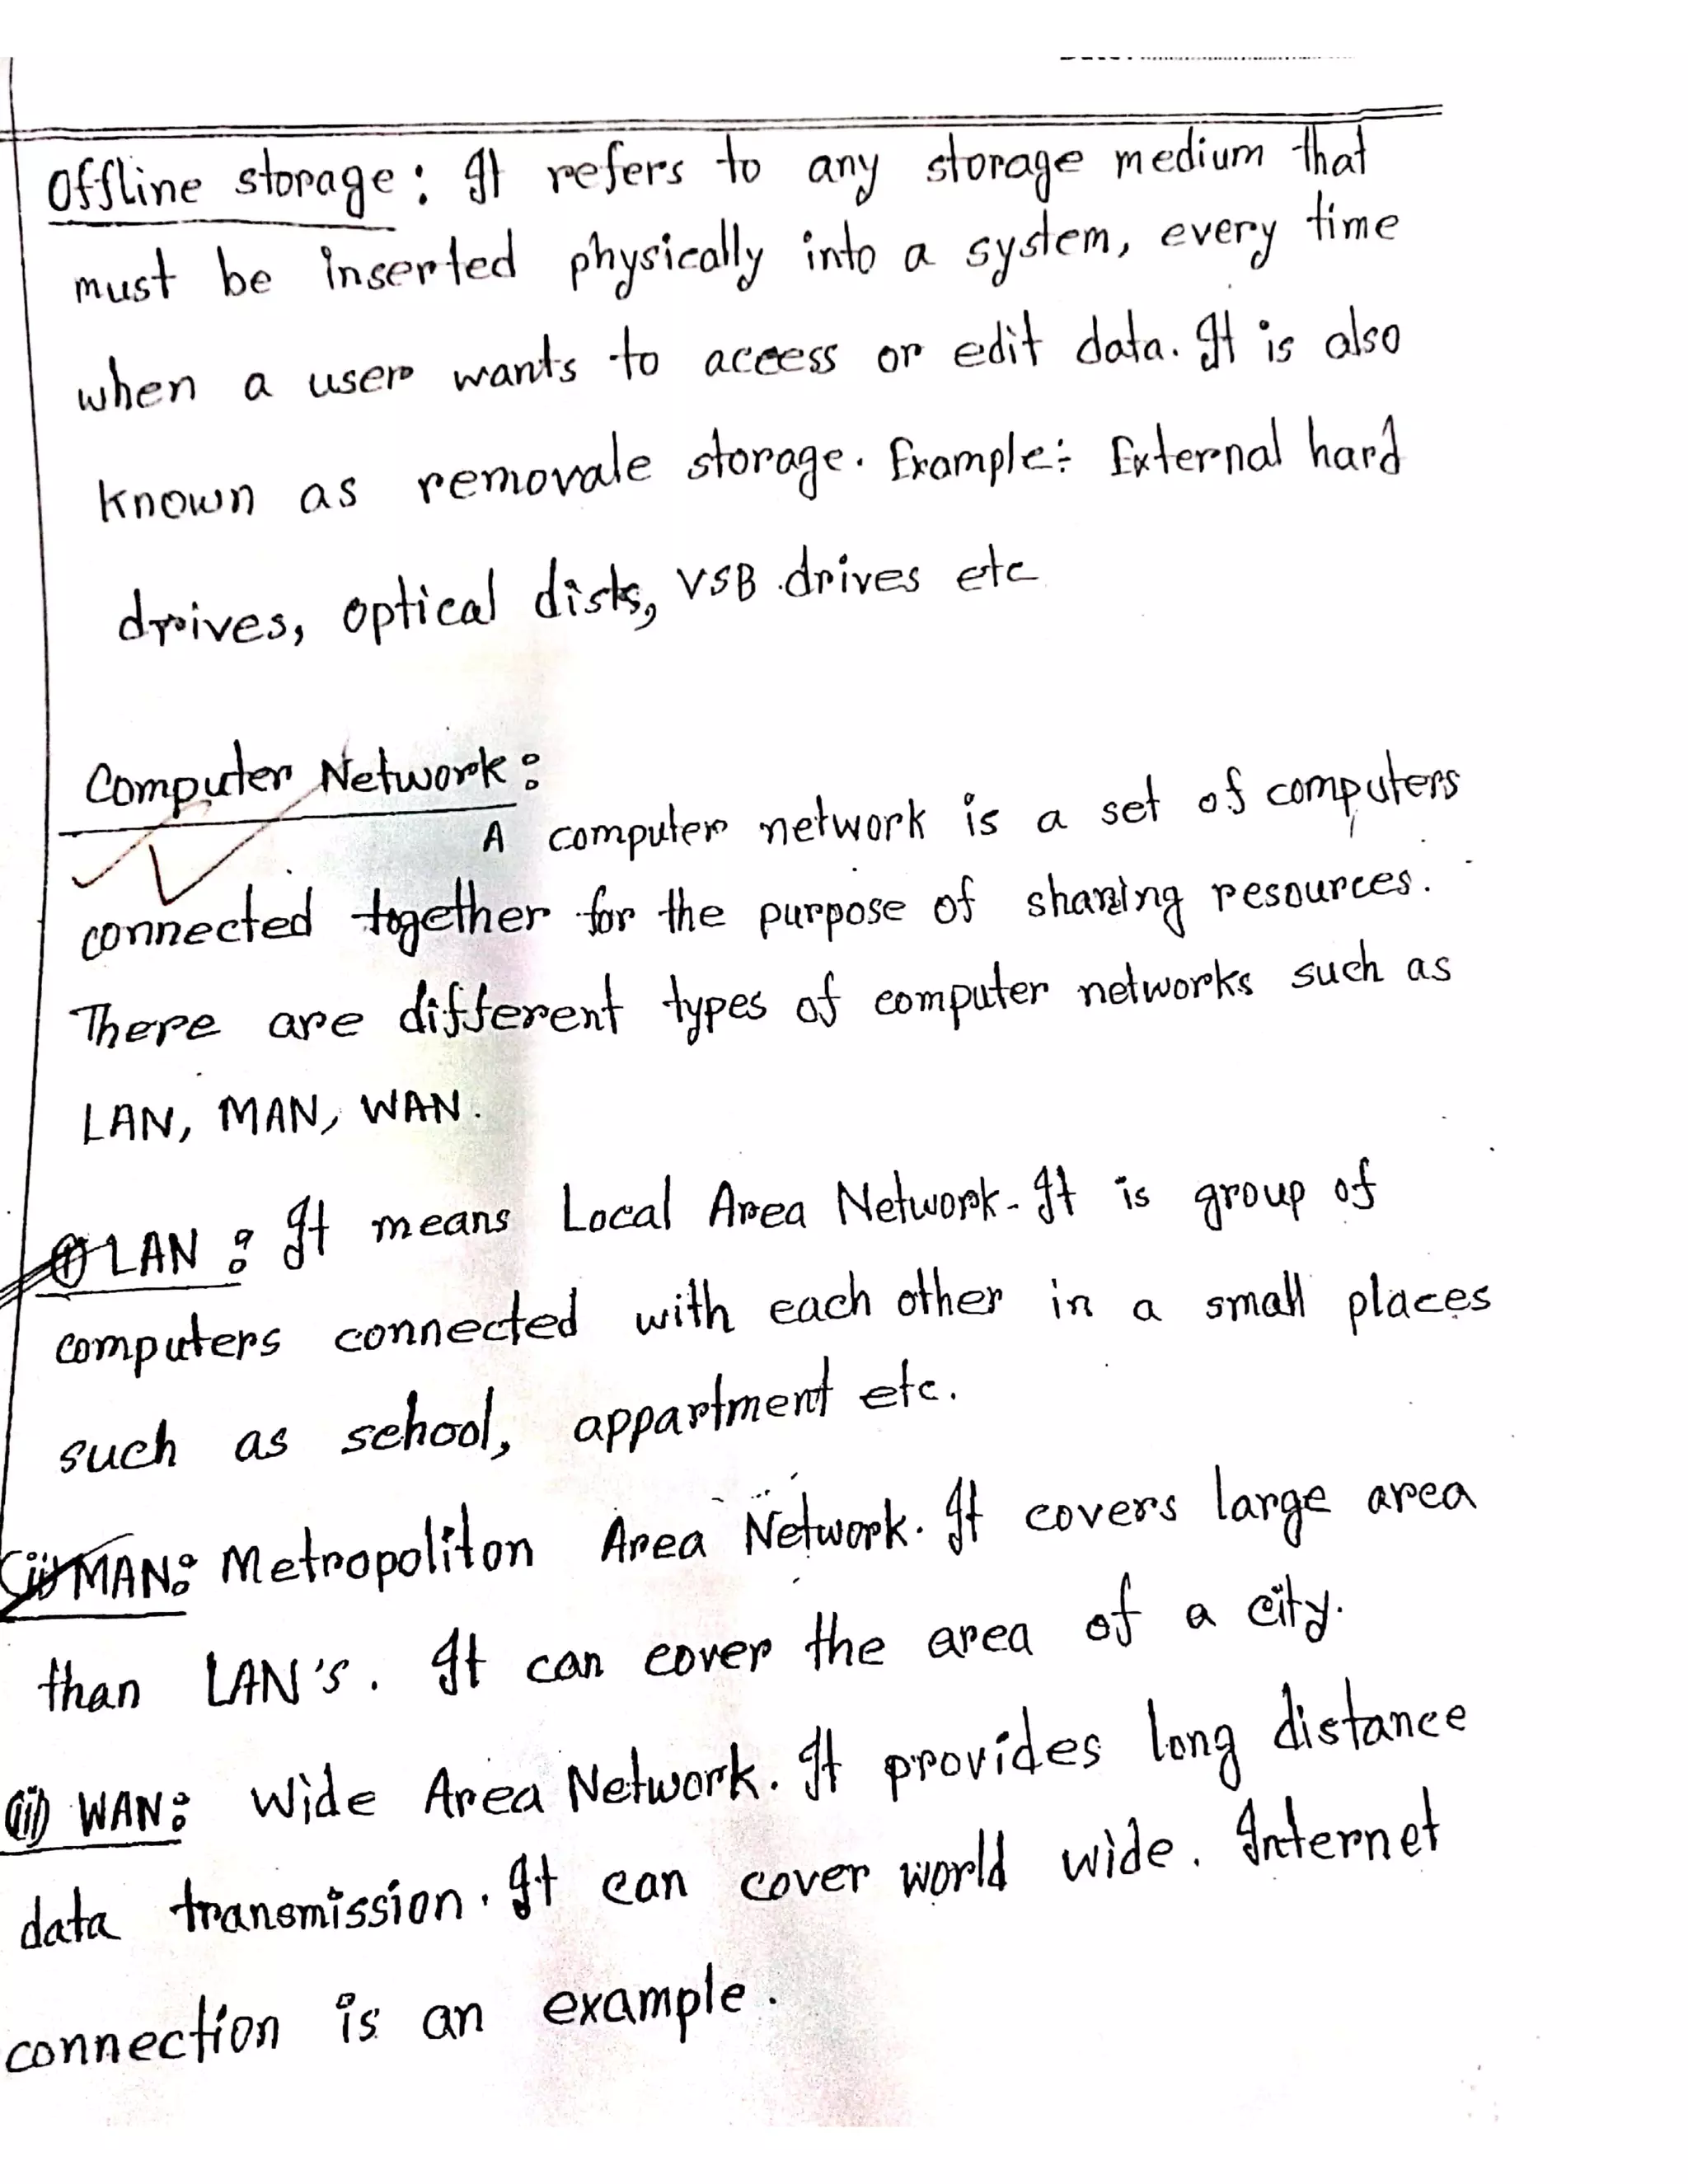 Offline storage: It refers to any storage medium that
must be inserted physically into a system, every time
when a user wants to access or edit data. It is also
known as removale storage. Example: External hard
drives, optical disks, USB drives etc
Computer Network:
A computer network is a set of computers
connected together for the purpose of sharing resources.
There are different types of computer networks such as
LAN, MAN, WAN.
(i) LAN: It means Local Area Network. It is group of
computers connected with each other in a small places
such as school, appartment etc.
(ii) MAN: Metropoliton Area Network. It covers large area
than LAN's. It can cover the area of a city.
(iii) WAN: Wide Area Network. It provides long distance
data transmission. It can cover world wide. Internet
connection is an example.